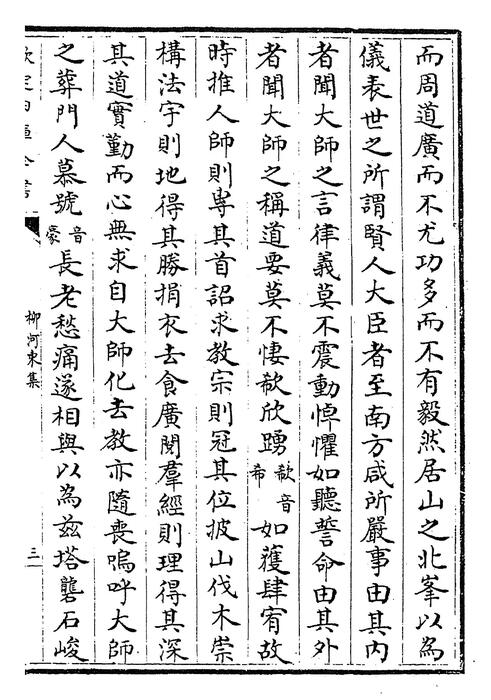 而周道廣而不尤功多而不有毅然居山之北峯以為
儀表世之所謂賢人大臣者至南方咸所嚴事由其內
者聞大師之言律義莫不震動悼懼如聽誓命由其外
者聞大師之稱道要莫不悽欷欣踴欷音希如獲肆宥故
時推人師則專其首詔求教宗則冠其位披山伐木崇
構法宇則地得其勝捐衣去食廣閱羣經則理得其深
其道實勤而心無求自大師化去教亦隨喪嗚呼大師
之葬門人慕號音豪長老愁痛遂相與以為茲塔礱石峻
欽定四庫全書
柳河東集
三